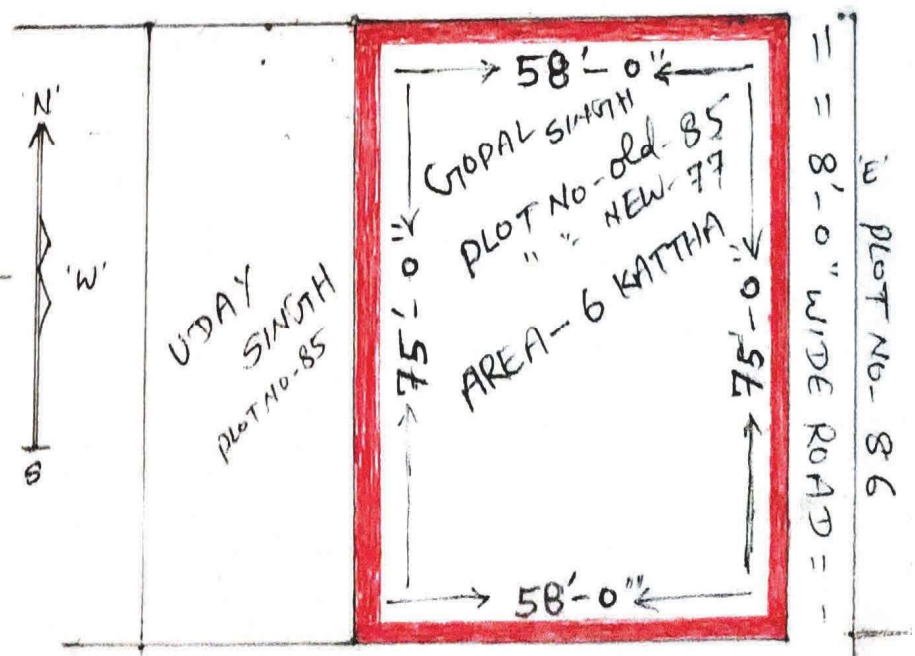 'N'
'W'
S
UDAY
SINGH
PLOT NO-85
58'-0"
GOPAL SINGH
PLOT NO-old-85
" " NEW-77
AREA-6 KATTHA
75'-0"
75'-0"
58'-0"
= = 8'-0" WIDE ROAD = -
'E' PLOT NO-86